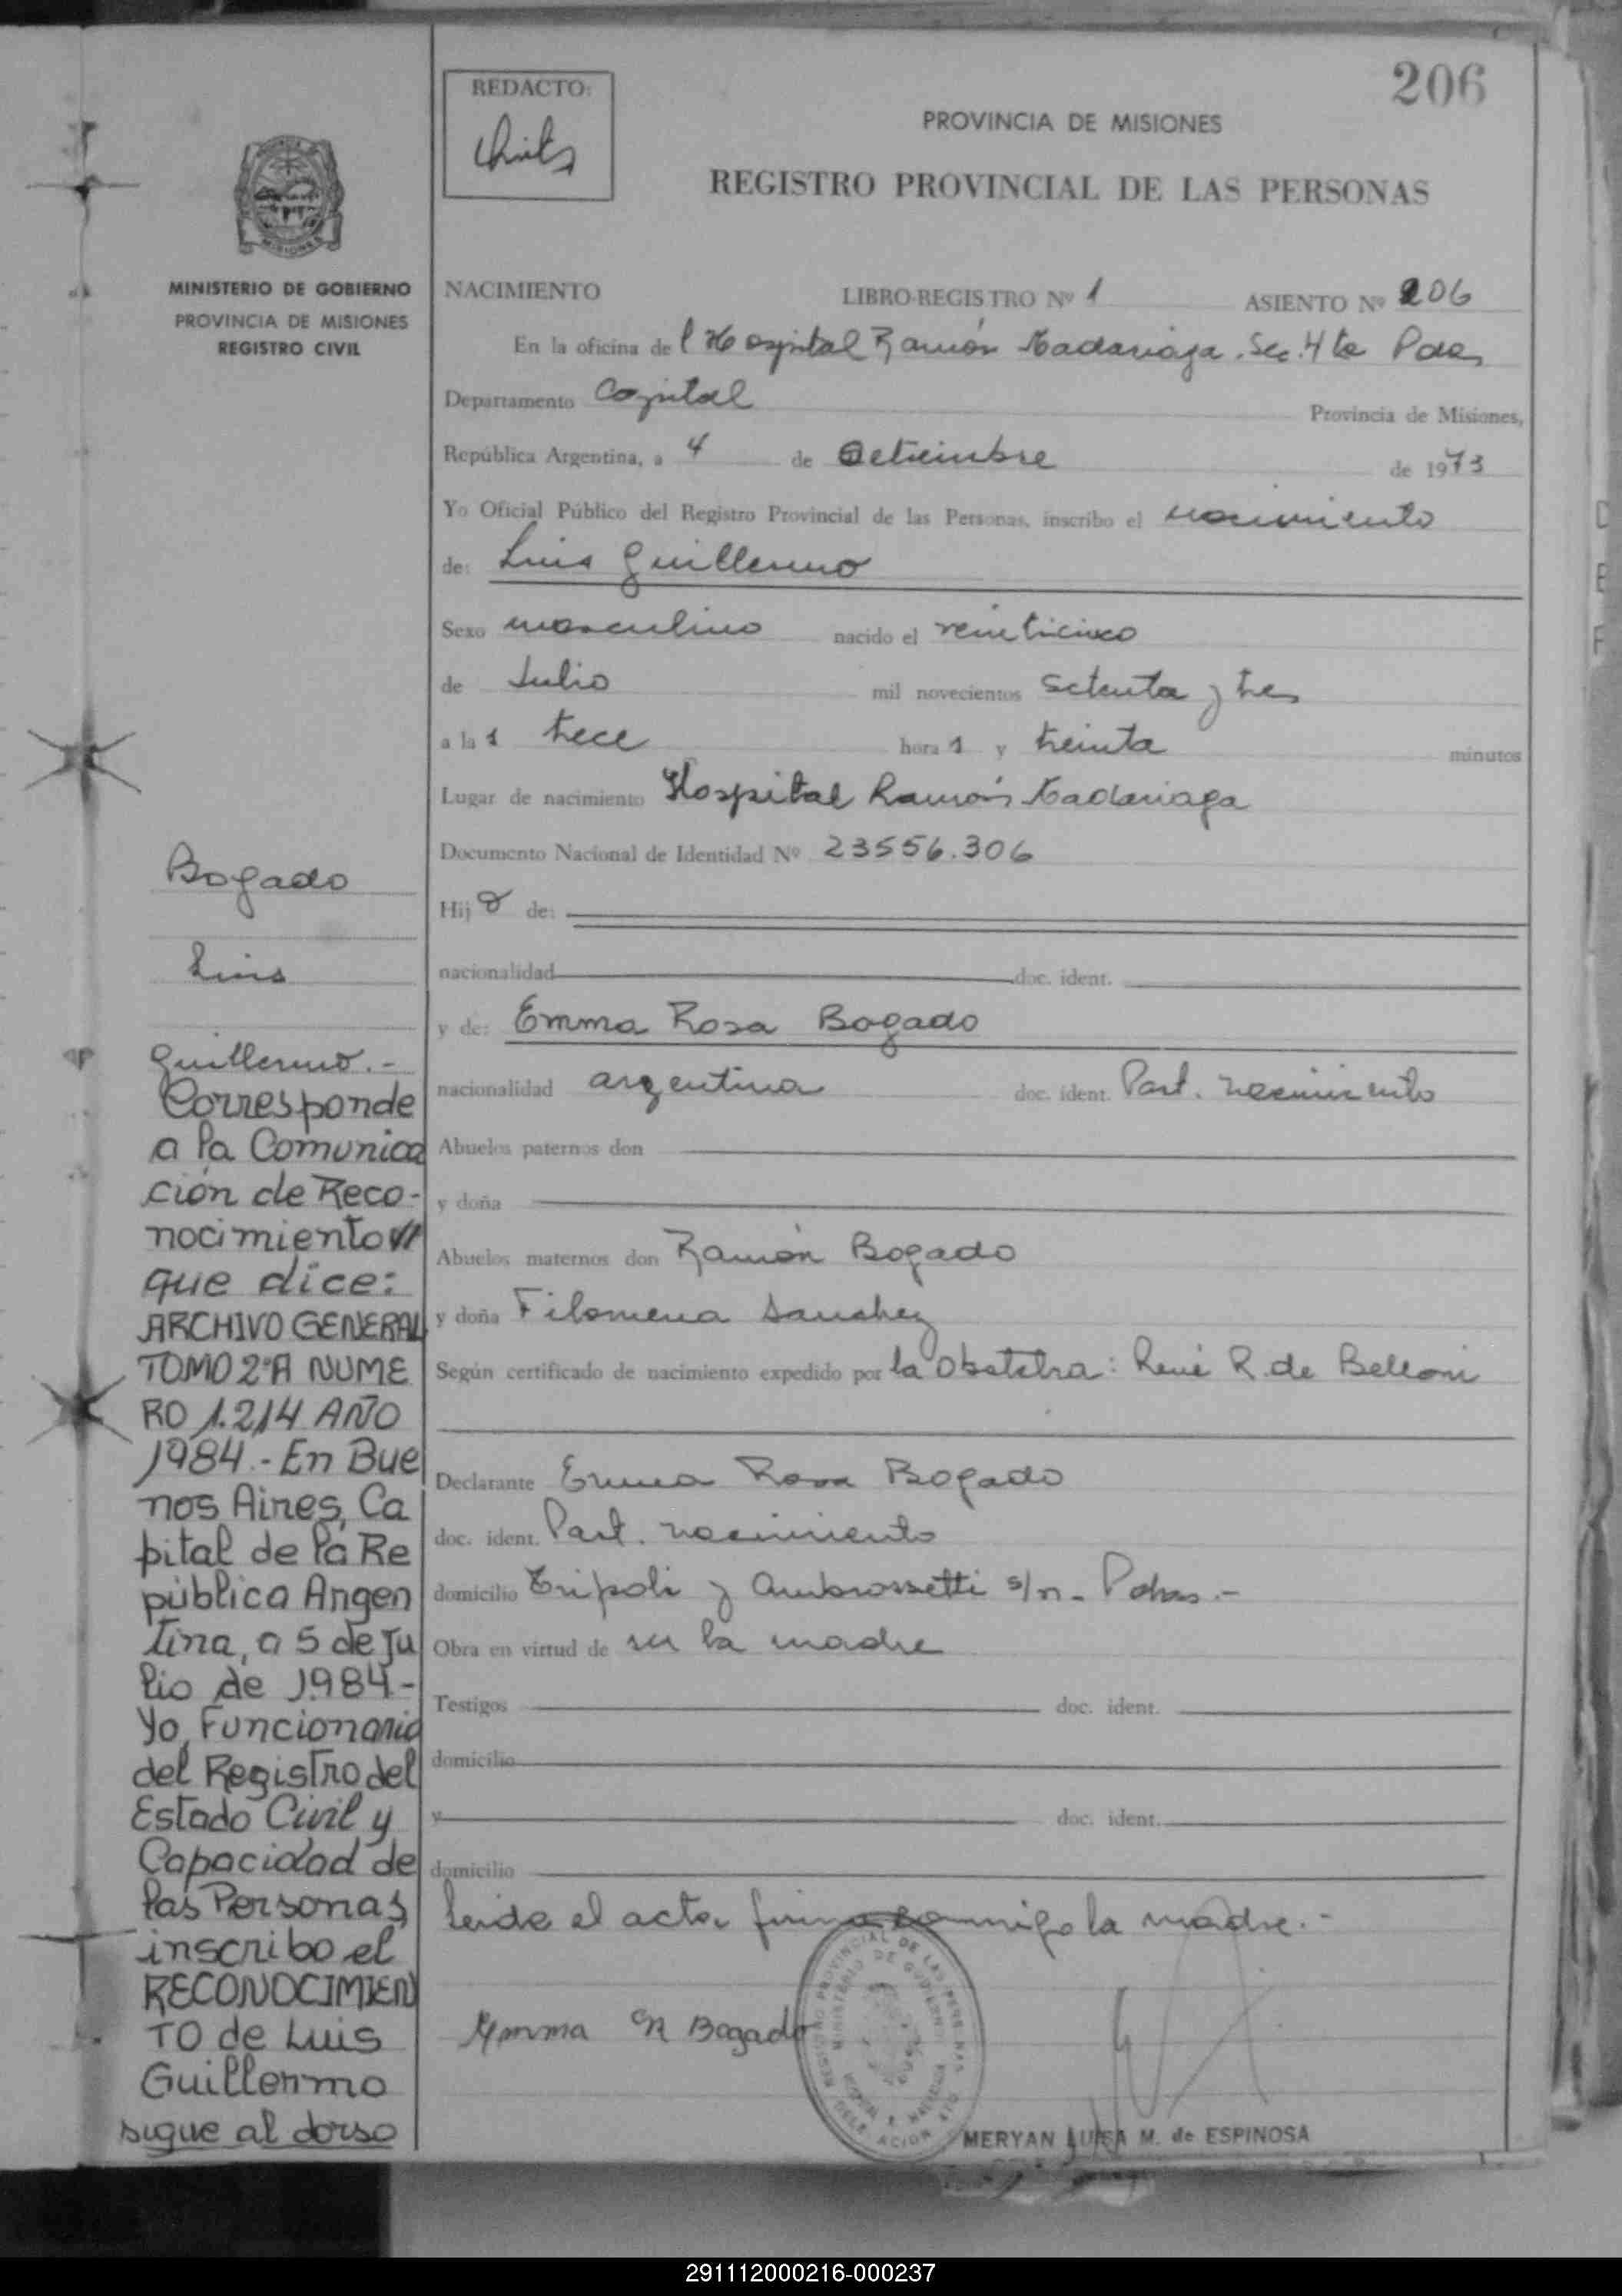 206
REDACTO:
PROVINCIA DE MISIONES
REGISTRO PROVINCIAL DE LAS PERSONAS
MISIONES
MINISTERIO DE GOBIERNO
PROVINCIA DE MISIONES
REGISTRO CIVIL
NACIMIENTO LIBRO-REGISTRO Nº 1 ASIENTO Nº 206
En la oficina de l Hospital Ramón Madariaga. Sec. 4ta Pdas
Departamento Capital Provincia de Misiones,
República Argentina, a 4 de Setiembre de 1973
Yo Oficial Público del Registro Provincial de las Personas, inscribo el nacimiento
de: Luis Guillermo
Sexo masculino nacido el veinticinco
de Julio mil novecientos setenta y tres
a las trece horas y treinta minutos
Lugar de nacimiento Hospital Ramón Madariaga
Documento Nacional de Identidad Nº 23556.306
Hijo de:
nacionalidad doc. ident.
y de: Emma Rosa Bogado
nacionalidad argentina doc. ident. Part. nacimiento
Abuelos paternos don
y doña
Abuelos maternos don Ramón Bogado
y doña Filomena Sanchez
Según certificado de nacimiento expedido por la Obstetra: René R. de Belloni
Declarante Emma Rosa Bogado
doc. ident. Part. nacimiento
domicilio Tripoli y Ambrossetti s/n - Pdas.-
Obra en virtud de ser la madre
Testigos doc. ident.
domicilio
y doc. ident.
domicilio
Leida el acta, firma conmigo la madre.-
Emma R Bogado
MERYAN LUISA M. de ESPINOSA
Bogado
Luis
Guillermo.-
Corresponde
a la Comunica
ción de Reco-
nocimiento
que dice:
ARCHIVO GENERAL
TOMO 2ºA NUME
RO 1.214 AÑO
1984.- En Bue
nos Aires, Ca
pital de la Re
pública Argen
tina, a 5 de Ju
lio de 1984.-
Yo, Funcionario
del Registro del
Estado Civil y
Capacidad de
las Personas,
inscribo el
RECONOCIMIEN
TO de Luis
Guillermo
sigue al dorso
291112000216-000237